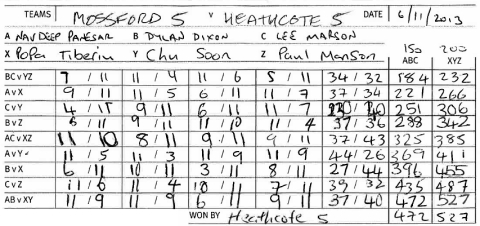 TEAMS MOSSFORD 5 V HEATHCOTE 5 DATE 6/11/2013
A NAVDEEP PANESAR B DYLAN DIXON C LEE MARSON
X Popa Tiberiu Y Chu Soon Z Paul Manson 150 ABC 200 XYZ
BC v YZ 7 / 11 11 / 4 11 / 6 5 / 11 34 / 32 184 232
A v X 9 / 11 11 / 5 6 / 11 11 / 7 37 / 34 221 266
C v Y 4 / 11 9 / 11 6 / 11 11 / 7 30 / 40 251 306
B v Z 8 / 11 9 / 11 11 / 10 11 / 4 37 / 36 288 342
AC v XZ 11 / 10 8 / 11 9 / 11 9 / 11 37 / 43 325 385
A v Y 11 / 5 11 / 3 11 / 9 11 / 9 44 / 26 369 411
B v X 6 / 11 10 / 11 3 / 11 8 / 11 27 / 44 396 455
C v Z 11 / 6 11 / 4 10 / 11 7 / 11 39 / 32 435 487
AB v XY 11 / 9 11 / 9 6 / 11 9 / 11 37 / 40 472 527
WON BY Heathcote 5 472 527